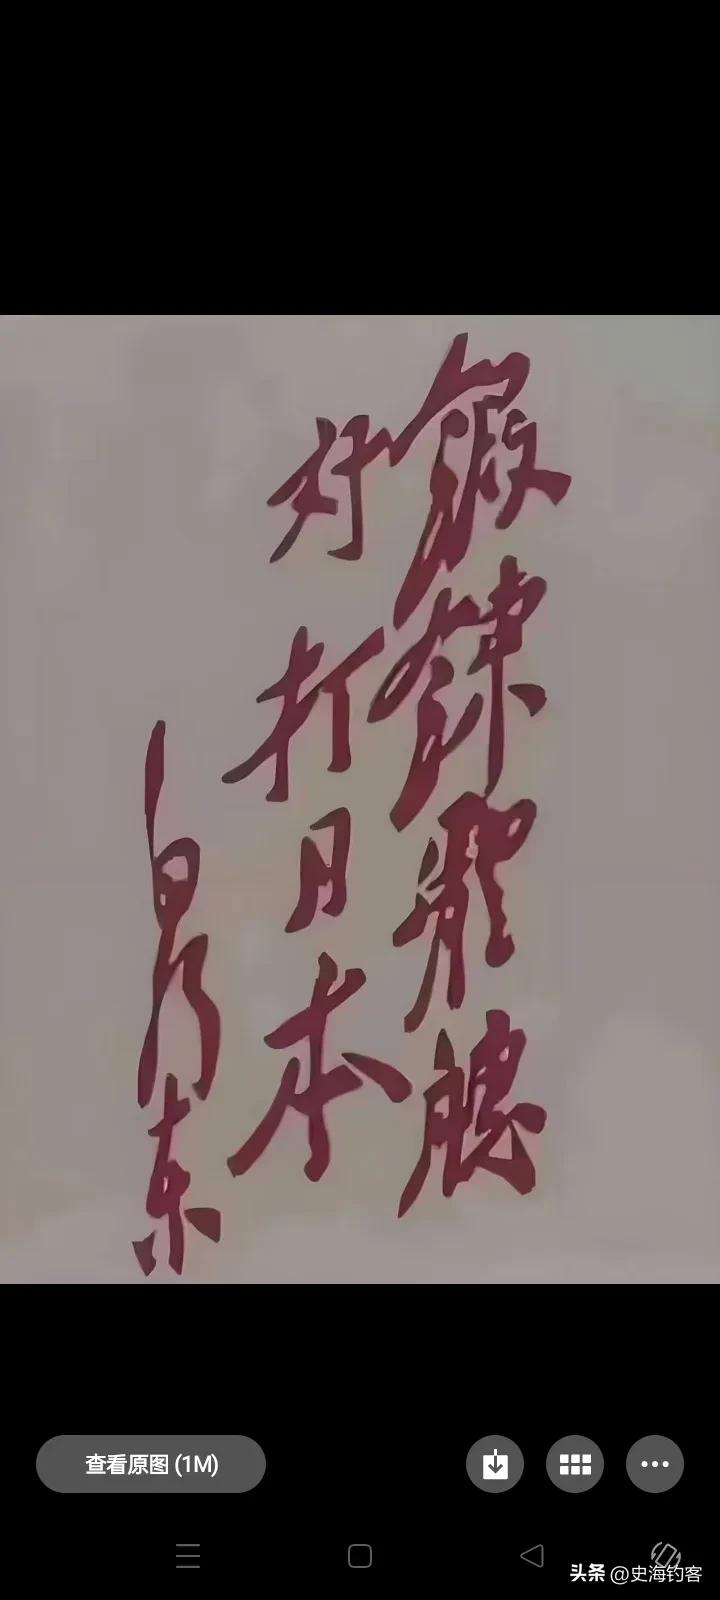 鍛鍊體魄
好打日本
毛泽东
查看原图 (1M)
头条 @史海钓客